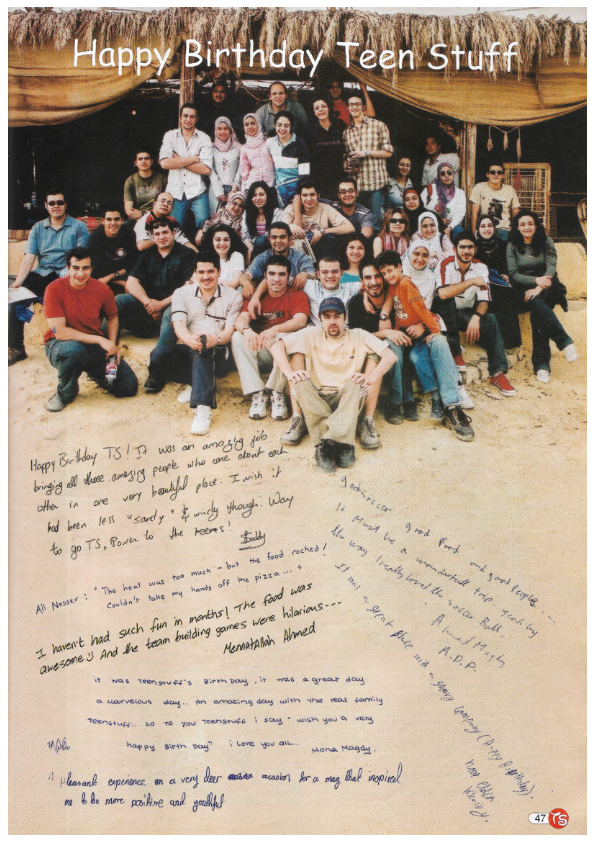 Happy Birthday Teen Stuff
Happy Birthday TS! It was an amazing job
bringing all those amazing people who care about each
other in one very beautiful place. I wish it
had been less "sandy" & windy though. Way
to go TS, Power to the teens!
Ali Nasser: "The heat was too much - but the food rocked!
Couldn't take my hands off the pizza..."
I haven't had such fun in months! The food was
awesome :) And the team building games were hilarious...
Mennatallah Ahmed
it was Teenstuff's Birthday, it was a great day
a Marvelous day.. An amazing day with the real family
Teenstuff.. so to you Teenstuff i say "wish you a very
happy Birth Day" i love you all... Mona Magdy.
Pleasant experience on a very dear occasion for a mag that inspired
me to be more positive and youthful
good food and good people...
It Must be a wonderfull trip
the way I really loved the Soccer Ball
Ahmad Magdy
A.D.P.
It was a great place with a company (Happy Birthday)
47 TS